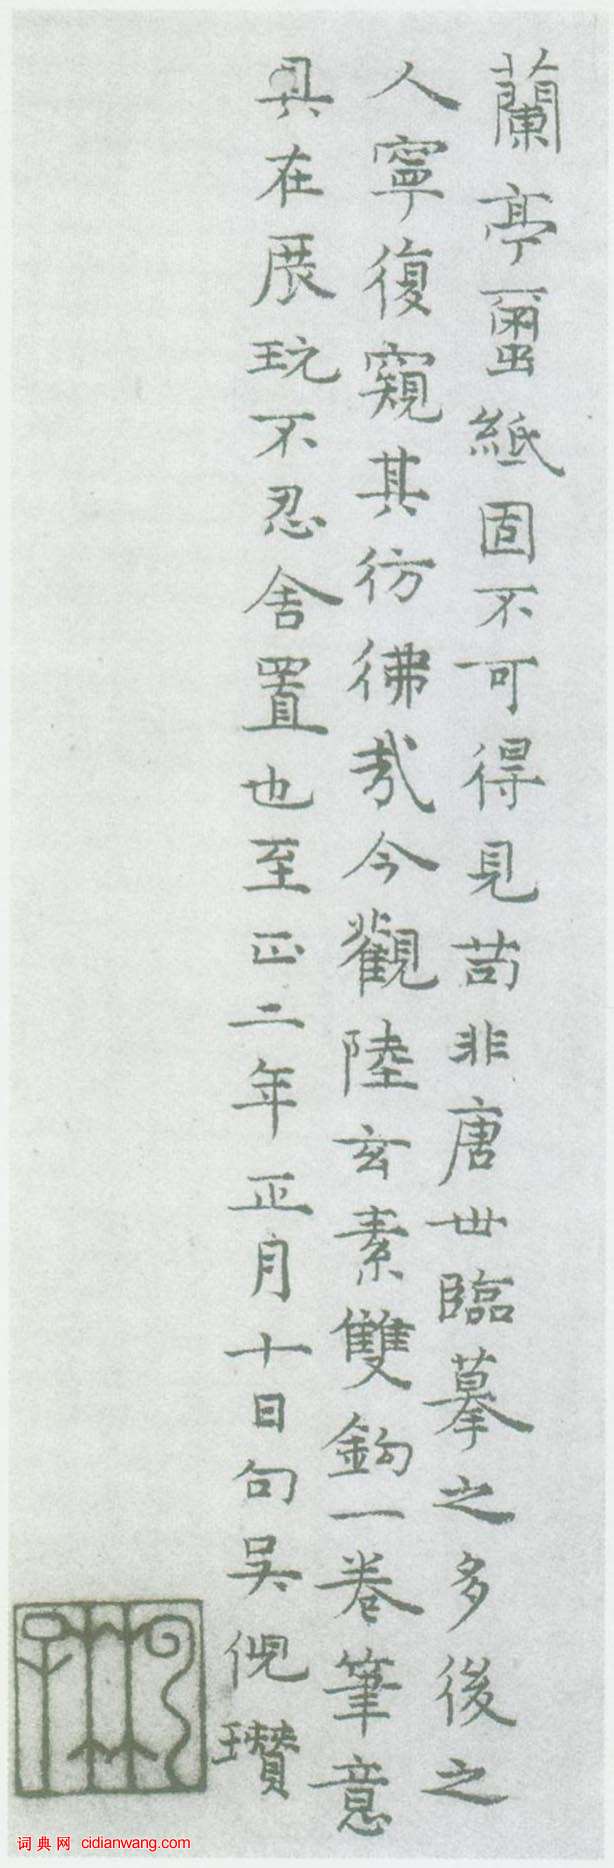 蘭亭璽紙固不可得見苟非唐世臨摹之多後之
人寧復窺其彷彿哉今觀陸玄素雙鉤一卷筆意
具在展玩不忍舍置也至正二年正月十日句吳倪瓚
词典网 cidianwang.com